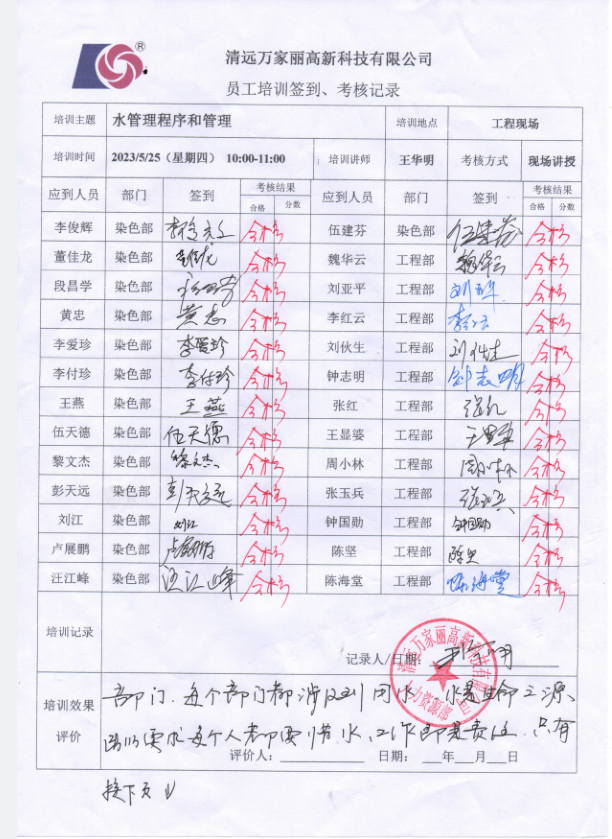 ®
清远万家丽高新科技有限公司
员工培训签到、考核记录
培训主题 水管理程序和管理 培训地点 工程现场
培训时间 2023/5/25（星期四） 10:00-11:00 培训讲师 王华明 考核方式 现场讲授
应到人员 部门 签到 考核结果 应到人员 部门 签到 考核结果
合格 分数 合格 分数
李俊辉 染色部 合格 伍建芬 染色部 伍建芬 合格
董佳龙 染色部 合格 魏华云 工程部 魏华云 合格
段昌学 染色部 合格 刘亚平 工程部 合格
黄忠 染色部 黄忠 合格 李红云 工程部 合格
李爱珍 染色部 李爱珍 合格 刘伙生 工程部 合格
李付珍 染色部 李付珍 合格 钟志明 工程部 钟志明 合格
王燕 染色部 王燕 合格 张红 工程部 张红 合格
伍天德 染色部 伍天德 合格 王显婆 工程部 合格
黎文杰 染色部 黎文杰 合格 周小林 工程部 周小林 合格
彭天远 染色部 彭天远 合格 张玉兵 工程部 张玉兵 合格
刘江 染色部 刘江 合格 钟国勋 工程部 钟国勋 合格
卢展鹏 染色部 卢展鹏 合格 陈坚 工程部 陈坚 合格
汪江峰 染色部 汪江峰 合格 陈海堂 工程部 陈海堂 合格
培训记录
记录人/日期：
清远万家丽高新科技有限公司
人力资源部
培训效果
评价
各部门，每个部门都涉及到用水，水是生命之源
所以要求每个人都要节水，工作即是责任，只有
评价人： 日期： 年 月 日
接下页↓